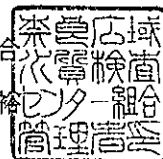 奈良広域
水質検査
センター組合
管理者印
合